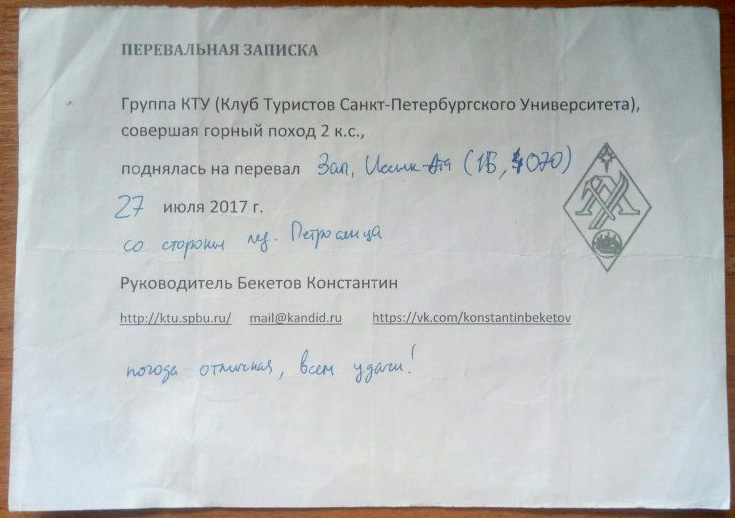 ПЕРЕВАЛЬНАЯ ЗАПИСКА
Группа КТУ (Клуб Туристов Санкт-Петербургского Университета),
совершая горный поход 2 к.с.,
поднялась на перевал Зап. Иссык-Ата (1Б, 4070)
27 июля 2017 г.
со стороны лед. Петросянца
Руководитель Бекетов Константин
http://ktu.spbu.ru/ mail@kandid.ru https://vk.com/konstantinbeketov
погода отличная, всем удачи!